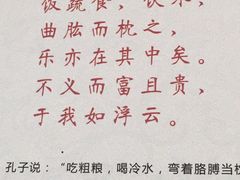 饭疏食，饮水，
曲肱而枕之，
乐亦在其中矣。
不义而富且贵，
于我如浮云。
孔子说：“吃粗粮，喝冷水，弯着胳膊当枕